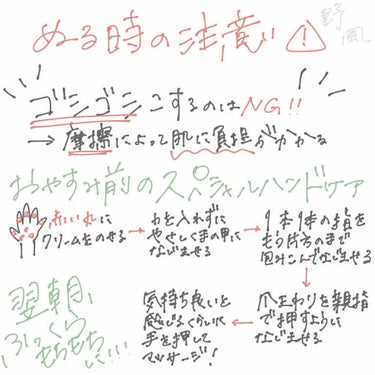 ぬる時の注意
野風
ゴシゴシこするのはNG!!
→摩擦によって肌に負担がかかる
おやすみ前のスペシャルハンドケア
赤い丸に
クリームをのせる
→
力を入れずに
やさしく手の甲に
なじませる
→
1本1本の指を
もう片方の手で
包みこんでなじませる
↓
爪まわりを親指
で押すように
なじませる
←
気持ち良いと
感じるくらいに
手を押して
マッサージ!
翌朝、
ふっくら
もちもち